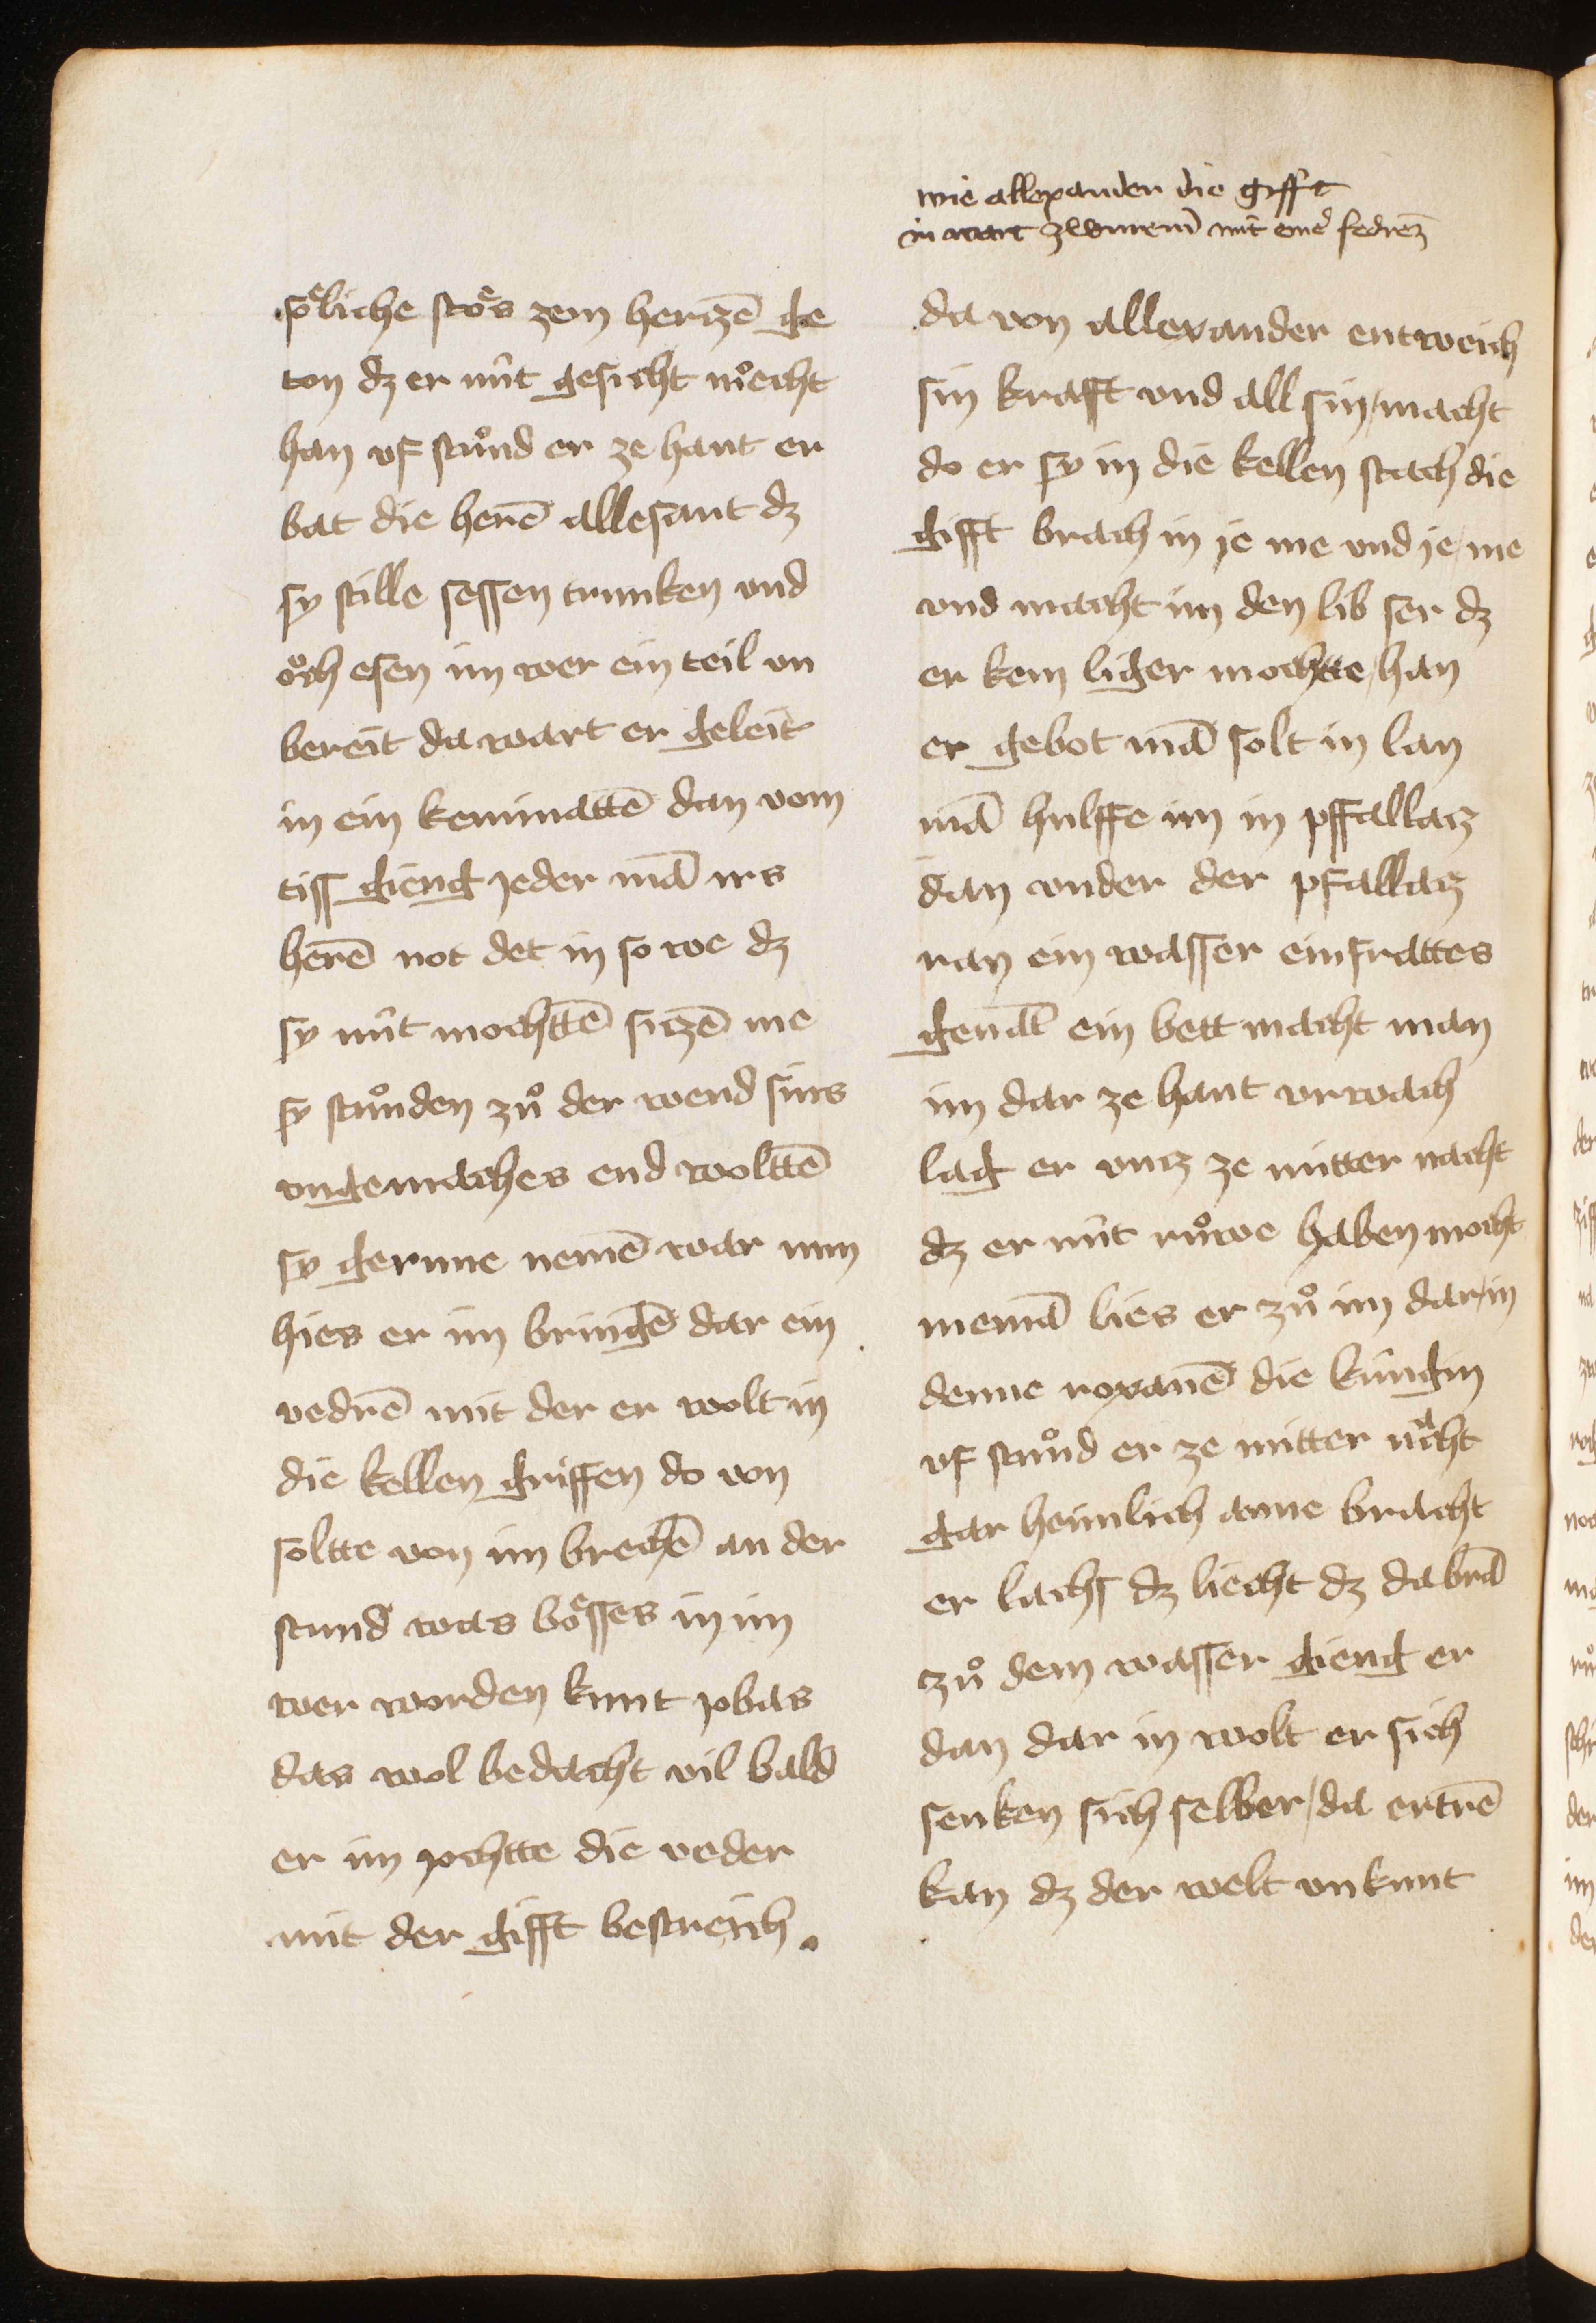 soͤliche stoͤs zem herczē ge
ton dz er nüt gesicht moͤcht
han vf stuͦnd er ze hant er
bat die herē alle sant dz
sy stille sessen trunken vnd
oͮch esen im wer ein teil vn
bereit da wart er geleit
in ein keminattē dan vom
tiss gieng jeder mā irs
herē not det in so we dz
sy nüt mochttē siczē me
sy stuͦnden zuͦ der wend sins
vngemaches end wolttē
sy gerune nemē war nun
hies er im bringē dar ein
vedrē mit der er wolt in
die kellen griffen do von
soltte von im brechē an der
stund was boͤsses in im
wer worden kunt jobas
das wol bedacht vil bald
er im rochtte die veder
mit der gifft bestreich.
wie allexander die gifft
in wart mit einer fedrez
da von allexander entweich
sin krafft vnd all sin macht
do er sy in die kellen stach die
gifft brach in je me vnd je me
vnd macht im den lib ser dz
er kein liger mochtte han
er gebot mā solt in lan
mā hulffe im in pffallacz
dan vnder der pfallacz
ran ein wasser einfrattes
genāt ein bett macht man
im dar ze hant vrwach
lag er vncz ze mitter nacht
dz er nüt ruͦwe haben mocht
niemā lies er zuͦ im dar in
denne roxanē die küngin
vf stuͦnd er ze mitter nacht
gar heimlich anne bracht
er lachs dz liecht dz da brā
zuͦ dem wasser gieng er
dan dar in wolt er sich
senken sich selber da ertrē
kan dz der welt vnkunt